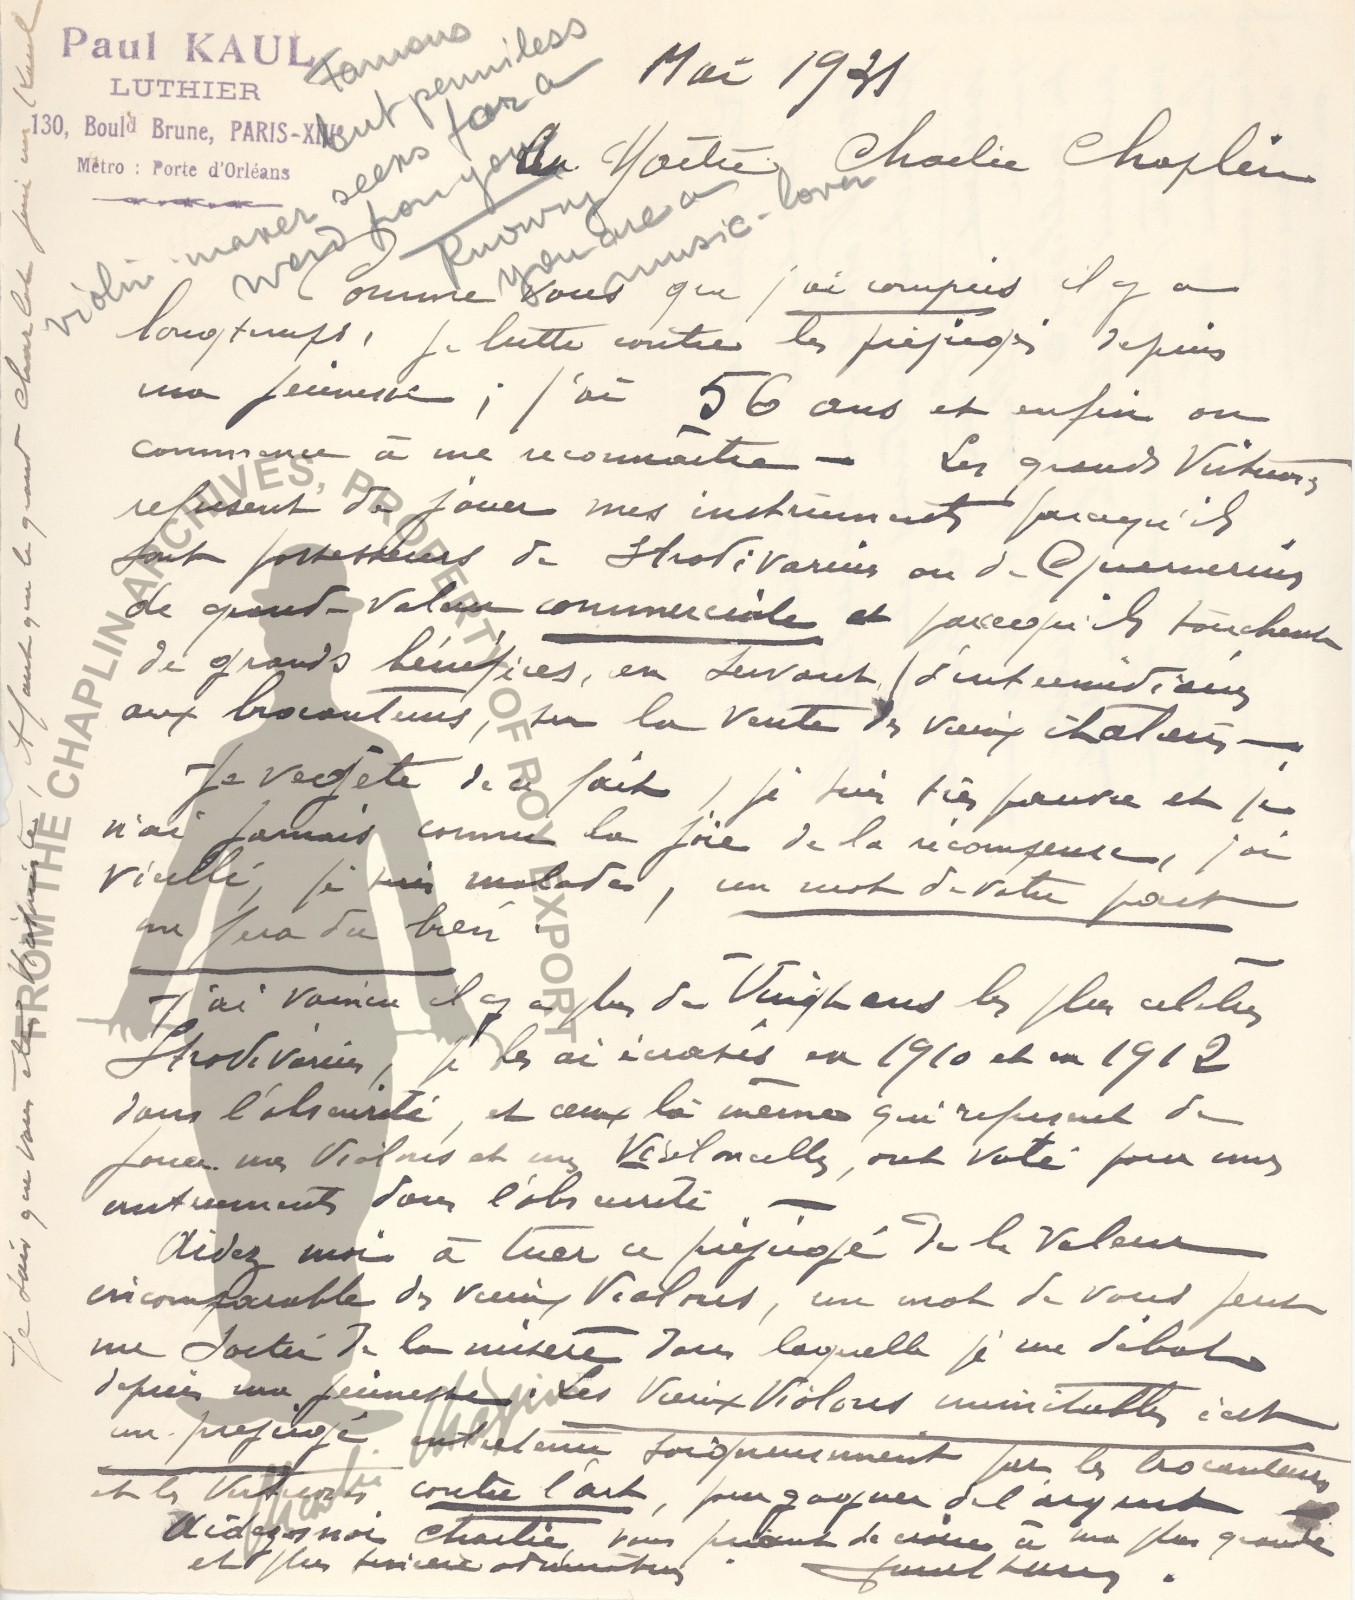 Paul KAUL
LUTHIER
130, Boul^d Brune, PARIS-XIV^e
Métro : Porte d'Orléans
Famous
but penniless
violin-maker seens for a
word from you
Knowing
you are a
music-lover
Mai 1931
Au Maître, Charlie Chaplin
Comme vous que j'ai compris il y a
longtemps, je lutte contre les préjugés depuis
ma jeunesse ; j'ai 56 ans et enfin on
commence à me reconnaître — Les grands Virtuoses
refusent de jouer mes instruments parcequ'ils
sont possesseurs de Stradivarius ou de Guarnerius
de grande valeur commerciale et parcequ'ils touchent
de grands bénéfices, en servant d'intermédiaires
aux brocanteurs, sur la vente des vieux
Je végète de ce fait, je suis très pauvre et je
n'ai jamais connu la joie de la récompense, j'ai
vieilli, je suis malade, un mot de votre part
me fera du bien.
J'ai vaincu il y a plus de Vingt ans les plus célèbres
Stradivarius, je les ai écrasés en 1910 et en 1912
dans l'obscurité, et ceux là même qui refusent de
jouer mes Violons et mes Violoncelles, ont voté pour mes
instruments dans l'obscurité —
Aidez moi à tuer ce préjugé de la valeur
incomparable des vieux Violons, un mot de vous peut
me sortir de la misère dans laquelle je me débat
depuis ma jeunesse. Les vieux Violons inimitables c'est
un préjugé entretenu soigneusement par les brocanteurs
et les Virtuoses contre l'art, pour gagner de l'argent
Aidez moi Charlie, vous priant de croire à ma plus grande
et plus sincère admiration. Paul Kaul.
Je sais que vous êtes Maître, il faut que le grand Charlot joue un Kaul
Charlie Chaplin
FROM THE CHAPLIN ARCHIVES, PROPERTY OF ROY EXPORT